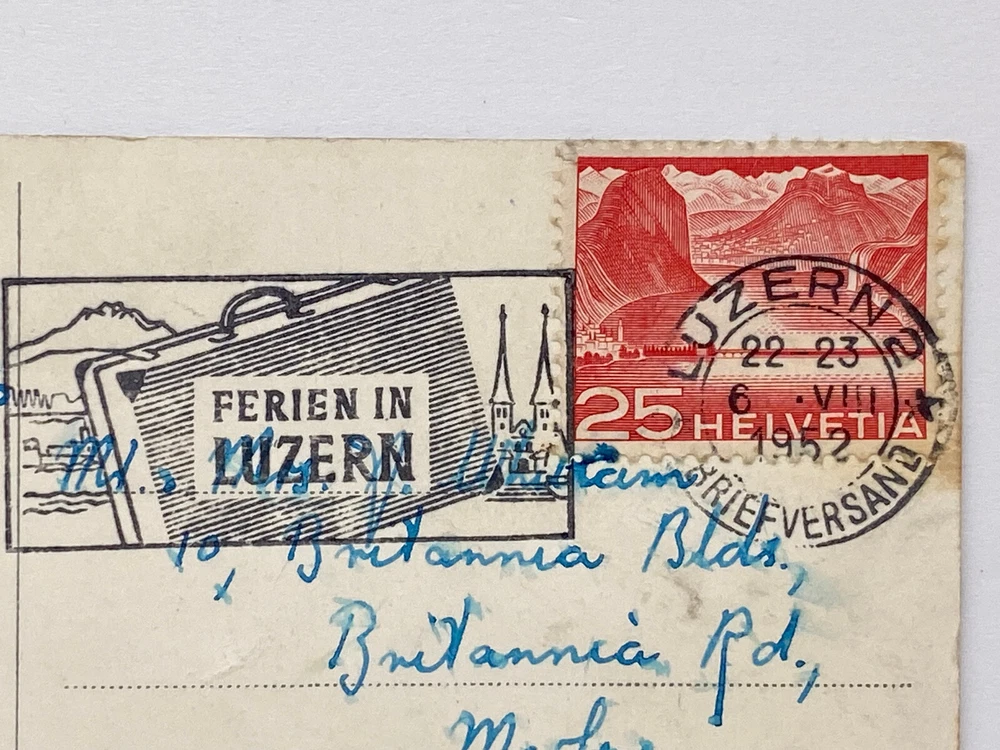 FERIEN IN
LUZERN
25 HELVETIA
LUZERN 2
22-23
6 .VIII.
1952
BRIEFVERSAND
Mrs. J.
10, Britannia Blds.,
Britannia Rd.,